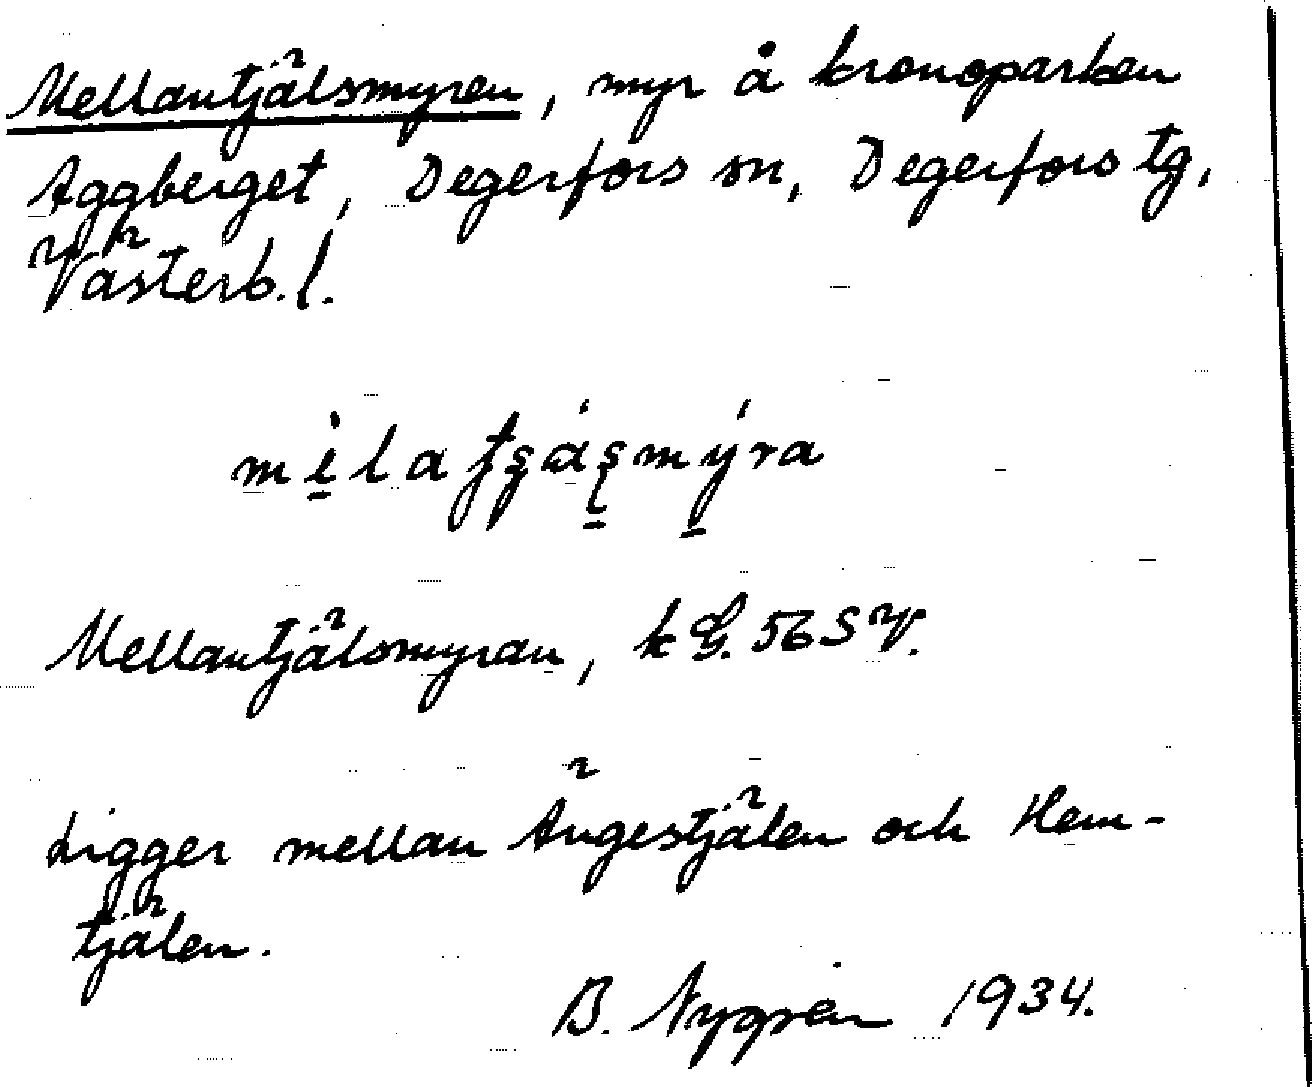 Mellantjälsmyren, myr å kronoparken
Aggberget, Degerfors sn, Degerfors tg,
Västerb. l.
Mellantjälsmyran, k G. 56 SV.
Ligger mellan Ängestjälen och Hem-
tjälen.
B. Nygren 1934.